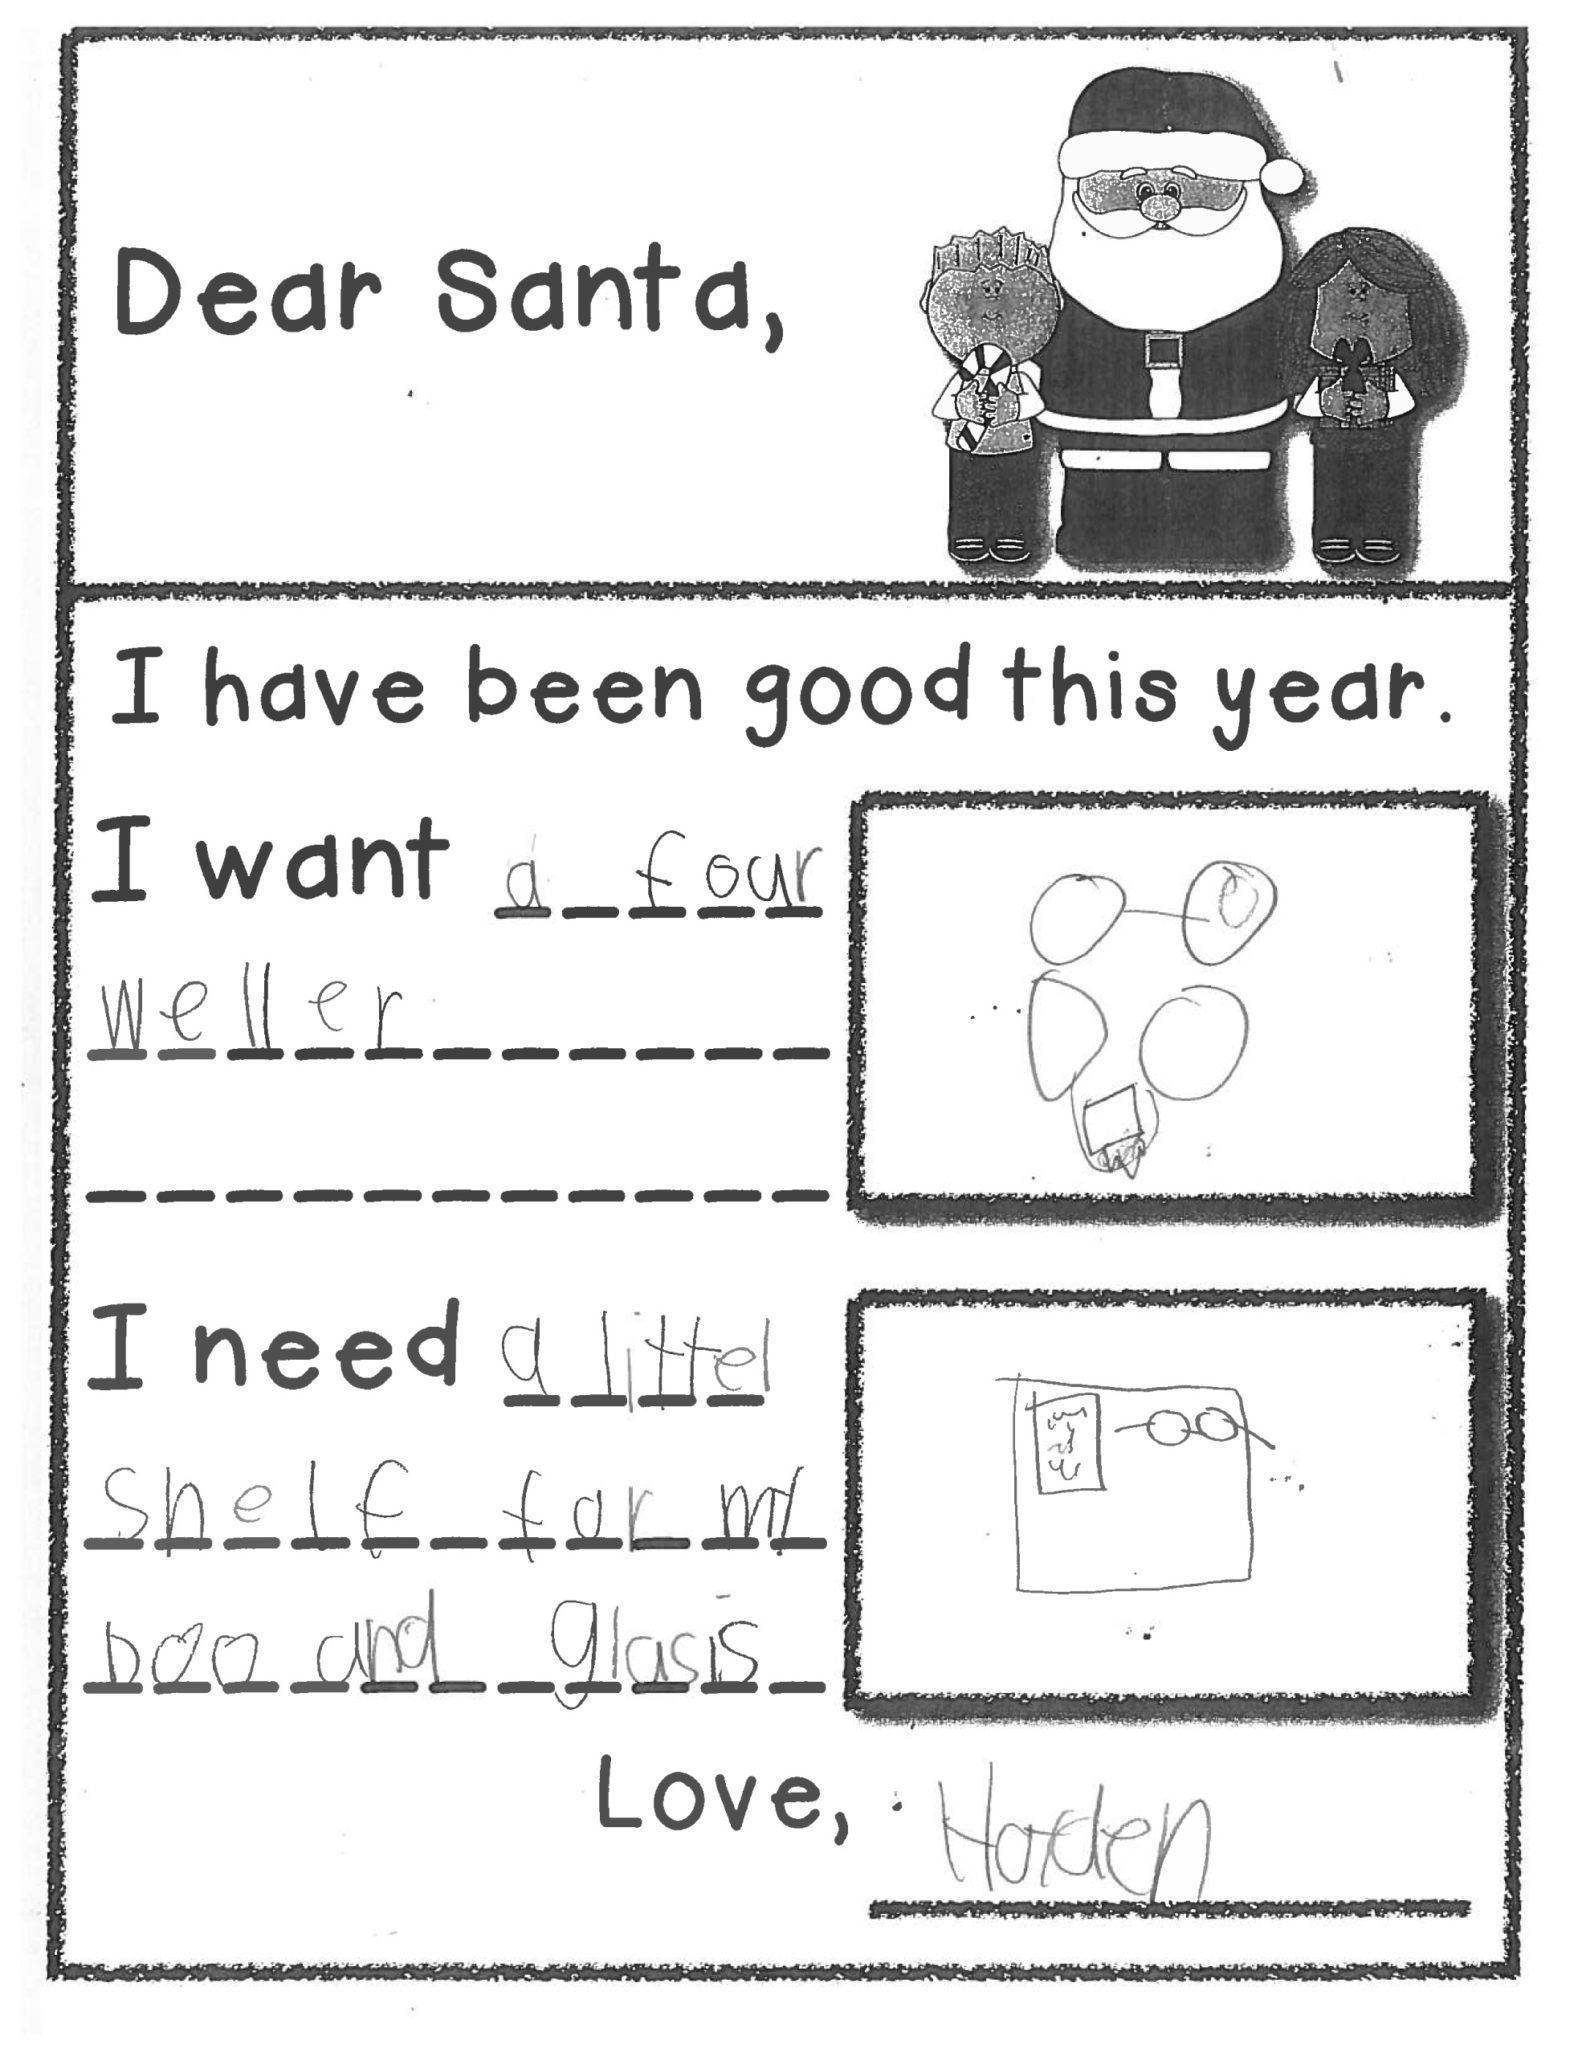 Dear Santa,
I have been good this year.
I want a four
weller
I need a littel
shelf for my
boo and glasis
Love, Harden